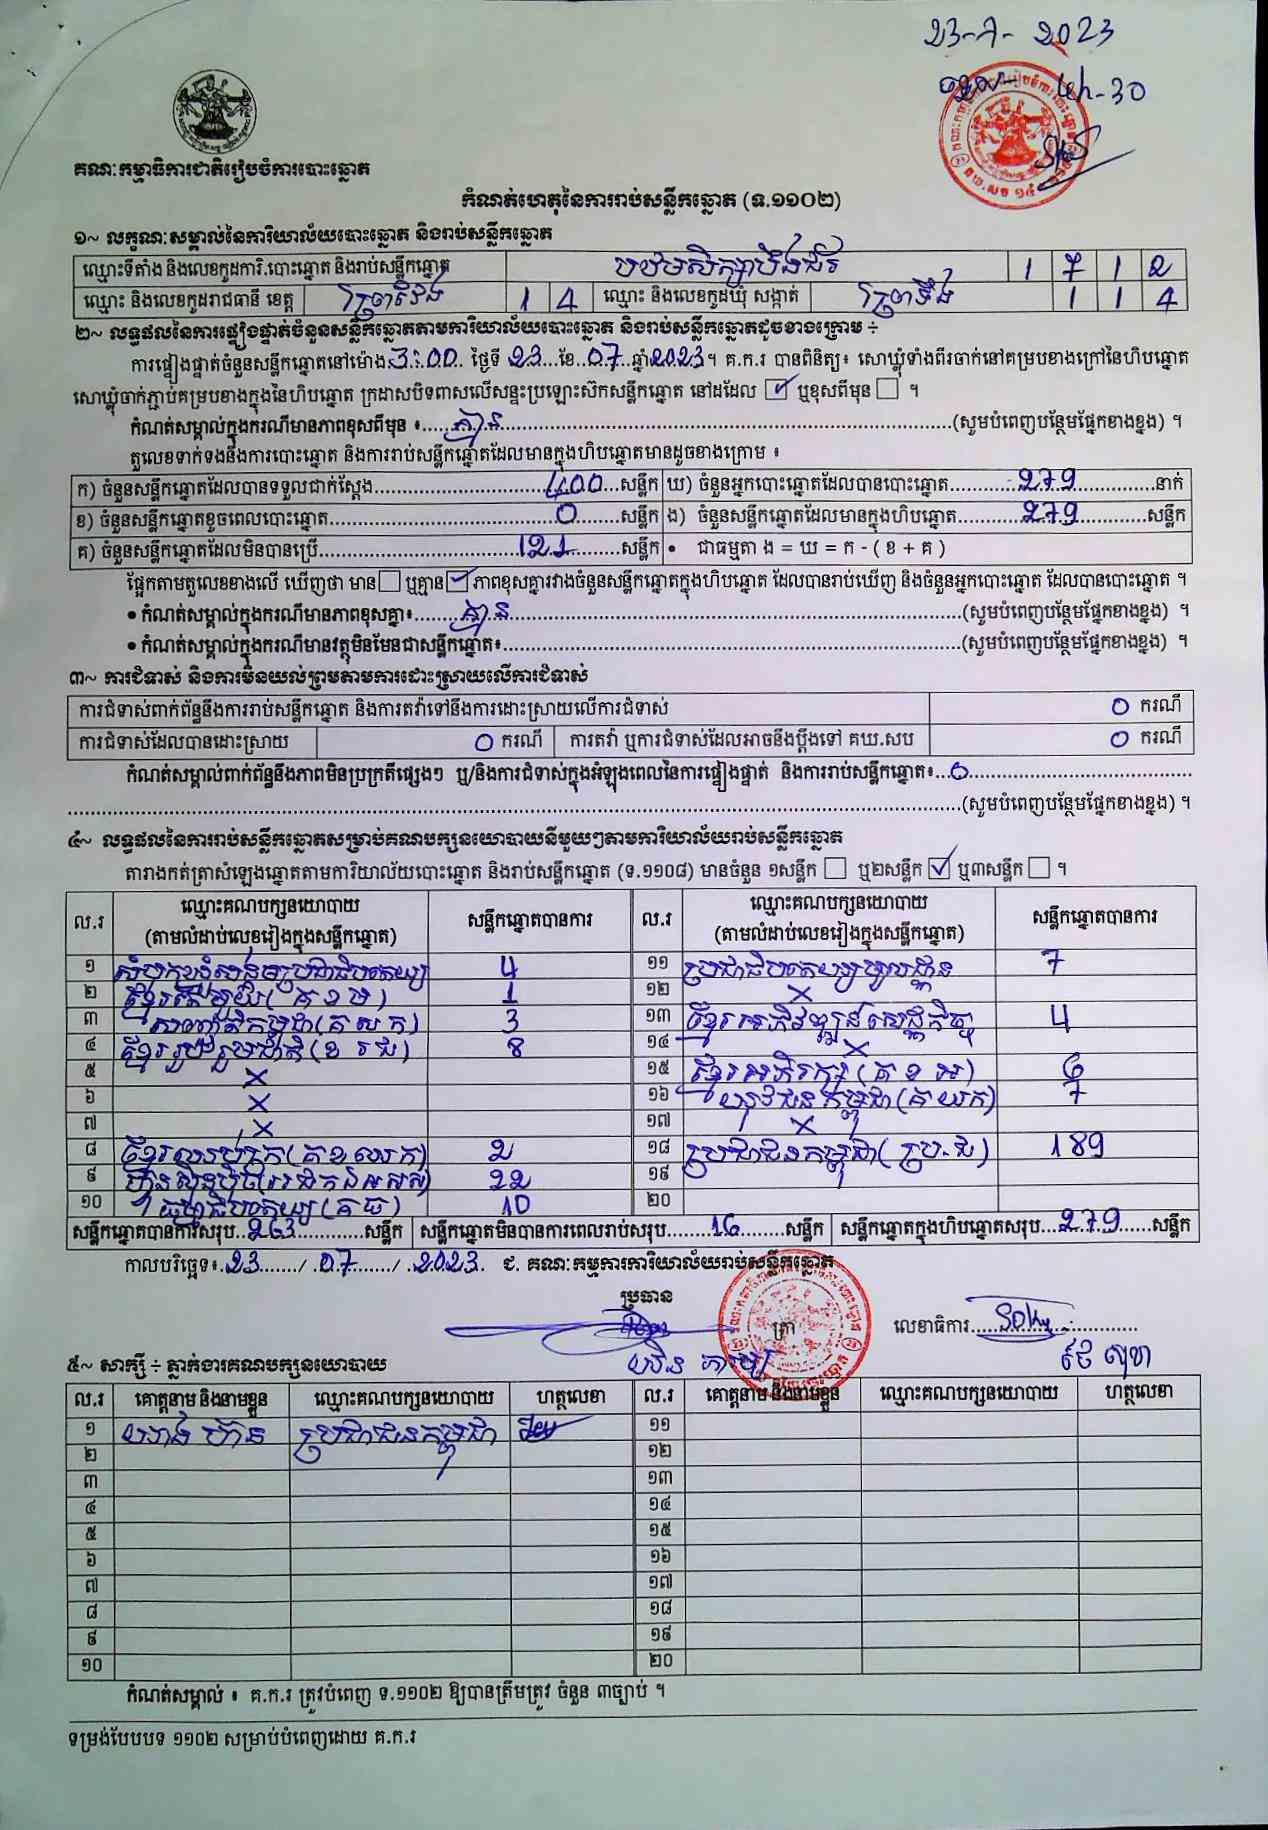 23-7-2023
គណៈកម្មាធិការជាតិរៀបចំការបោះឆ្នោត
កំណត់ហេតុនៃការរាប់សន្លឹកឆ្នោត (ទ.១១០២)
១~ លក្ខណៈសម្គាល់នៃការិយាល័យបោះឆ្នោត និងរាប់សន្លឹកឆ្នោត
ឈ្មោះទីតាំង និងលេខកូដការិ.បោះឆ្នោត និងរាប់សន្លឹកឆ្នោត បឋមសិក្សាបឹងជ័រ 1 7 1 2
ឈ្មោះ និងលេខកូដរាជធានី ខេត្ត ព្រៃវែង 1 4 ឈ្មោះ និងលេខកូដឃុំ សង្កាត់ 1 1 4
២~ លទ្ធផលនៃការផ្ទៀងផ្ទាត់ចំនួនសន្លឹកឆ្នោតតាមការិយាល័យបោះឆ្នោត និងរាប់សន្លឹកឆ្នោតដូចខាងក្រោម ÷
ការផ្ទៀងផ្ទាត់ចំនួនសន្លឹកឆ្នោតនៅម៉ោង 3:00 ថ្ងៃទី 23 ខែ 07 ឆ្នាំ 2023 ។ គ.ក.រ បានពិនិត្យ៖ សោឃ្លុំទាំងពីរចាក់នៅគម្របខាងក្រៅនៃហិបឆ្នោត
សោឃ្លុំចាក់ភ្ជាប់គម្របខាងក្នុងនៃហិបឆ្នោត ក្រដាសបិទពាសលើសន្ទះប្រឡោះស៊កសន្លឹកឆ្នោត នៅដដែល ☑ ឬខុសពីមុន ☐ ។
កំណត់សម្គាល់ក្នុងករណីមានភាពខុសពីមុន ៖ គ្មាន (សូមបំពេញបន្ថែមផ្នែកខាងខ្នង) ។
តួលេខទាក់ទងនឹងការបោះឆ្នោត និងការរាប់សន្លឹកឆ្នោតដែលមានក្នុងហិបឆ្នោតមានដូចខាងក្រោម ៖
ក) ចំនួនសន្លឹកឆ្នោតដែលបានទទួលជាក់ស្តែង 400 សន្លឹក ឃ) ចំនួនអ្នកបោះឆ្នោតដែលបានបោះឆ្នោត 279 នាក់
ខ) ចំនួនសន្លឹកឆ្នោតខូចពេលបោះឆ្នោត 0 សន្លឹក ង) ចំនួនសន្លឹកឆ្នោតដែលមានក្នុងហិបឆ្នោត 279 សន្លឹក
គ) ចំនួនសន្លឹកឆ្នោតដែលមិនបានប្រើ 121 សន្លឹក • ជាធម្មតា ង = ឃ = ក - ( ខ + គ )
ផ្អែកតាមតួលេខខាងលើ ឃើញថា មាន ☐ ឬគ្មាន ☑ ភាពខុសគ្នារវាងចំនួនសន្លឹកឆ្នោតក្នុងហិបឆ្នោត ដែលបានរាប់ឃើញ និងចំនួនអ្នកបោះឆ្នោត ដែលបានបោះឆ្នោត ។
• កំណត់សម្គាល់ក្នុងករណីមានភាពខុសគ្នា៖ គ្មាន (សូមបំពេញបន្ថែមផ្នែកខាងខ្នង) ។
• កំណត់សម្គាល់ក្នុងករណីមានវត្ថុមិនមែនជាសន្លឹកឆ្នោត៖ (សូមបំពេញបន្ថែមផ្នែកខាងខ្នង) ។
៣~ ការជំទាស់ និងការមិនយល់ព្រមតាមការដោះស្រាយលើការជំទាស់
ការជំទាស់ពាក់ព័ន្ធនឹងការរាប់សន្លឹកឆ្នោត និងការតវ៉ាទៅនឹងការដោះស្រាយលើការជំទាស់ 0 ករណី
ការជំទាស់ដែលបានដោះស្រាយ 0 ករណី ការតវ៉ា ឬការជំទាស់ដែលអាចនឹងប្តឹងទៅ គឃ.សប 0 ករណី
កំណត់សម្គាល់ពាក់ព័ន្ធនឹងភាពមិនប្រក្រតីផ្សេងៗ ឬ/និងការជំទាស់ក្នុងអំឡុងពេលនៃការផ្ទៀងផ្ទាត់ និងការរាប់សន្លឹកឆ្នោត៖ 0
(សូមបំពេញបន្ថែមផ្នែកខាងខ្នង) ។
៤~ លទ្ធផលនៃការរាប់សន្លឹកឆ្នោតសម្រាប់គណបក្សនយោបាយនីមួយៗតាមការិយាល័យរាប់សន្លឹកឆ្នោត
តារាងកត់ត្រាសំឡេងឆ្នោតតាមការិយាល័យបោះឆ្នោត និងរាប់សន្លឹកឆ្នោត (ទ.១១០៨) មានចំនួន ១សន្លឹក ☐ ឬ២សន្លឹក ☑ ឬ៣សន្លឹក ☐ ។
ល.រ ឈ្មោះគណបក្សនយោបាយ (តាមលំដាប់លេខរៀងក្នុងសន្លឹកឆ្នោត) សន្លឹកឆ្នោតបានការ ល.រ ឈ្មោះគណបក្សនយោបាយ (តាមលំដាប់លេខរៀងក្នុងសន្លឹកឆ្នោត) សន្លឹកឆ្នោតបានការ
១ សំបុកឃ្មុំសង្គមប្រជាធិបតេយ្យ 4 ១១ ប្រជាធិបតេយ្យមូលដ្ឋាន 7
២ ខ្មែរតែមួយ ( គ ខ ម ) 1 ១២ ×
៣ សញ្ជាតិកម្ពុជា (គ ស ក) 3 ១៣ ខ្មែរអភិវឌ្ឍន៍សេដ្ឋកិច្ច 4
៤ ខ្មែររួបរួមជាតិ ( ខ រ ជ ) 8 ១៤ ×
៥ × ១៥ ខ្មែរអភិរក្ស ( គ ខ អ ) 6
៦ × ១៦ យុវជនកម្ពុជា (គ យ ក) 7
៧ × ១៧ ×
៨ 2 ១៨ ប្រជាជនកម្ពុជា ( ប្រ.ជ ) 189
៩ ហ៊្វុនស៊ិនប៉ិច 22 ១៩
១០ ធម្មាធិបតេយ្យ (គ ធ) 10 ២០
សន្លឹកឆ្នោតបានការសរុប 263 សន្លឹក សន្លឹកឆ្នោតមិនបានការពេលរាប់សរុប 16 សន្លឹក សន្លឹកឆ្នោតក្នុងហិបឆ្នោតសរុប 279 សន្លឹក
កាលបរិច្ឆេទ៖ 23 / 07 / 2023 ជ. គណៈកម្មការការិយាល័យរាប់សន្លឹកឆ្នោត
ប្រធាន ត្រា លេខាធិការ
៥~ សាក្សី ÷ ភ្នាក់ងារគណបក្សនយោបាយ
ល.រ គោត្តនាម និងនាមខ្លួន ឈ្មោះគណបក្សនយោបាយ ហត្ថលេខា ល.រ គោត្តនាម និងនាមខ្លួន ឈ្មោះគណបក្សនយោបាយ ហត្ថលេខា
១ ប្រជាជនកម្ពុជា ១១
២ ១២
៣ ១៣
៤ ១៤
៥ ១៥
៦ ១៦
៧ ១៧
៨ ១៨
៩ ១៩
១០ ២០
កំណត់សម្គាល់ ៖ គ.ក.រ ត្រូវបំពេញ ទ.១១០២ ឱ្យបានត្រឹមត្រូវ ចំនួន ៣ច្បាប់ ។
ទម្រង់បែបបទ ១១០២ សម្រាប់បំពេញដោយ គ.ក.រ